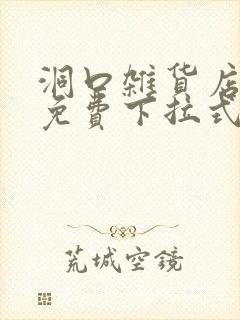 洞口雜貨店
免費下拉式
荒城空鏡